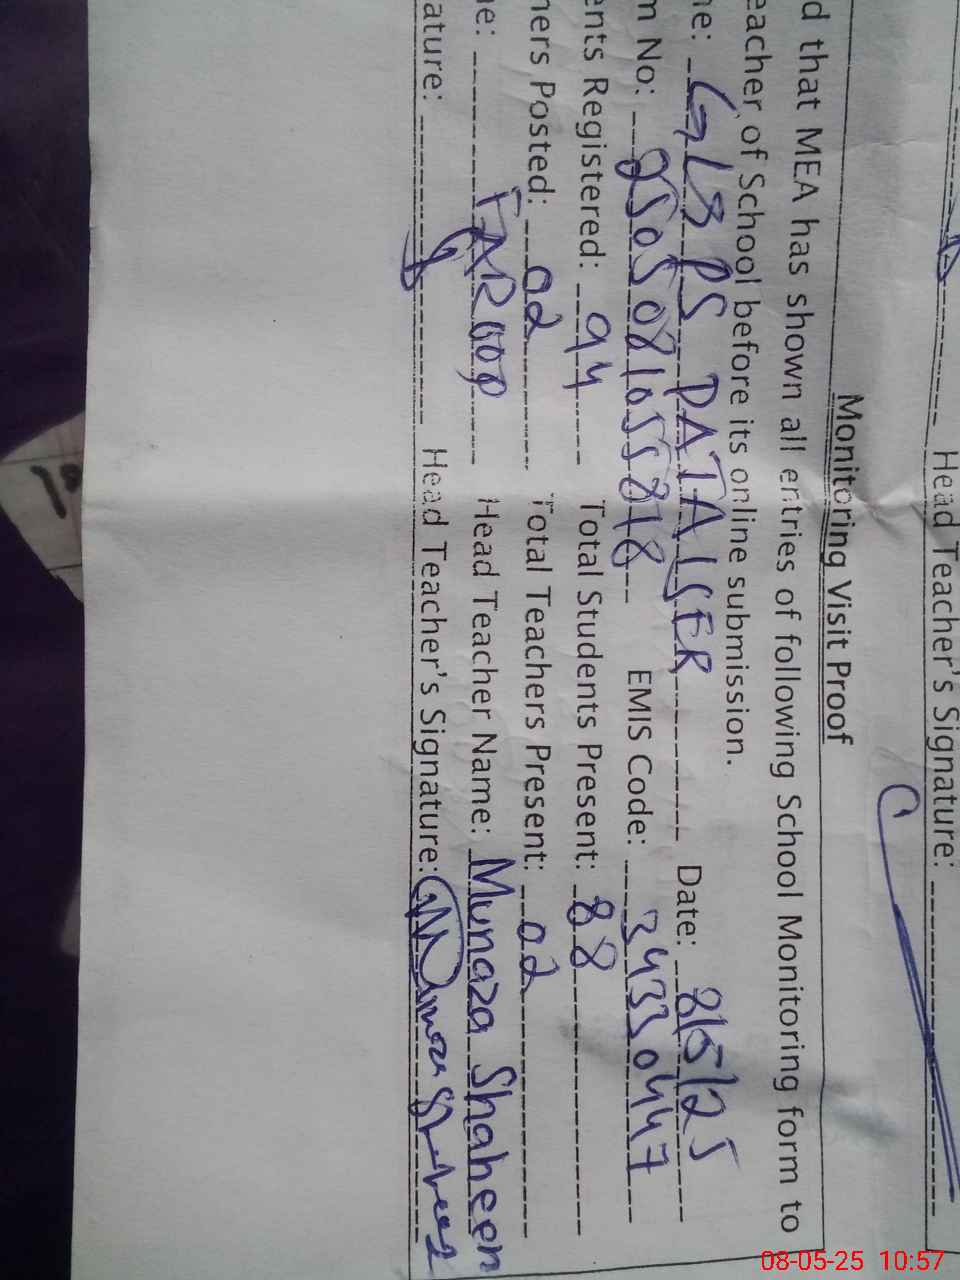 Head Teacher's Signature:
Monitoring Visit Proof
d that MEA has shown all entries of following School Monitoring form to
eacher of School before its online submission.
ne: GLSPS PATALSER Date: 8/5/25
m No: EMIS Code: 34330447
ents Registered: 94 Total Students Present: 88
hers Posted: 02 Total Teachers Present: 02
ne: FAROOQ Head Teacher Name: Munaza Shaheen
ature: Head Teacher's Signature:
08-05-25 10:57